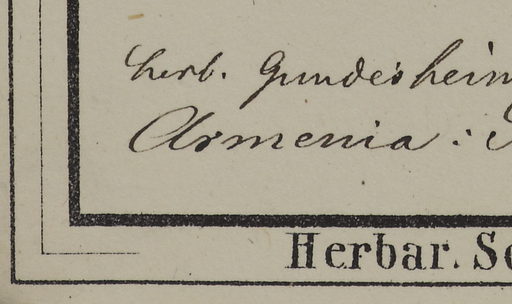 herb. Gundesheim
Armenia:
Herbar. Sc